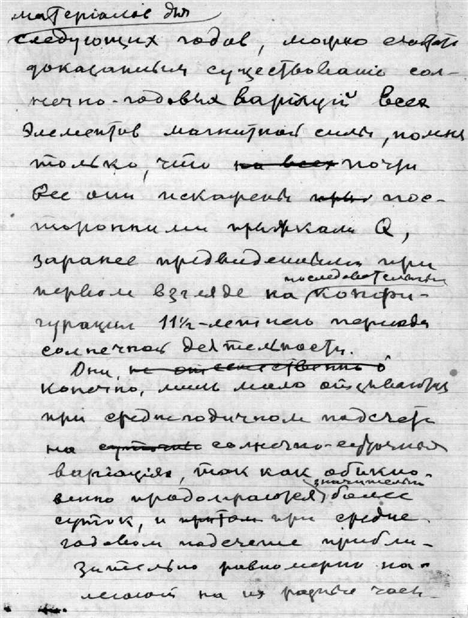 матерiалов для
следующих годов, можно считать
доказанным существованiе сол-
нечно-годовых варiацiй всех
элементов магнитной силы, помня
только, что на всех почти
все они искажены при пос-
торонними прыжками Q,
заранее предвиденными при
последовательных
первом взгляде на конфи-
гурацiи 11½-летнего периода
солнечной деятельности.
Они, не
конечно, лишь мало отзываются
при среднегодичном подсчете
на суточных солнечно-суточных
варiацiях, так как обыкно-
значительно
венно продолжаются более
суток, и притом при средне-
годовом подсчете прибли-
зительно равномерно на-
легают на их разные час-